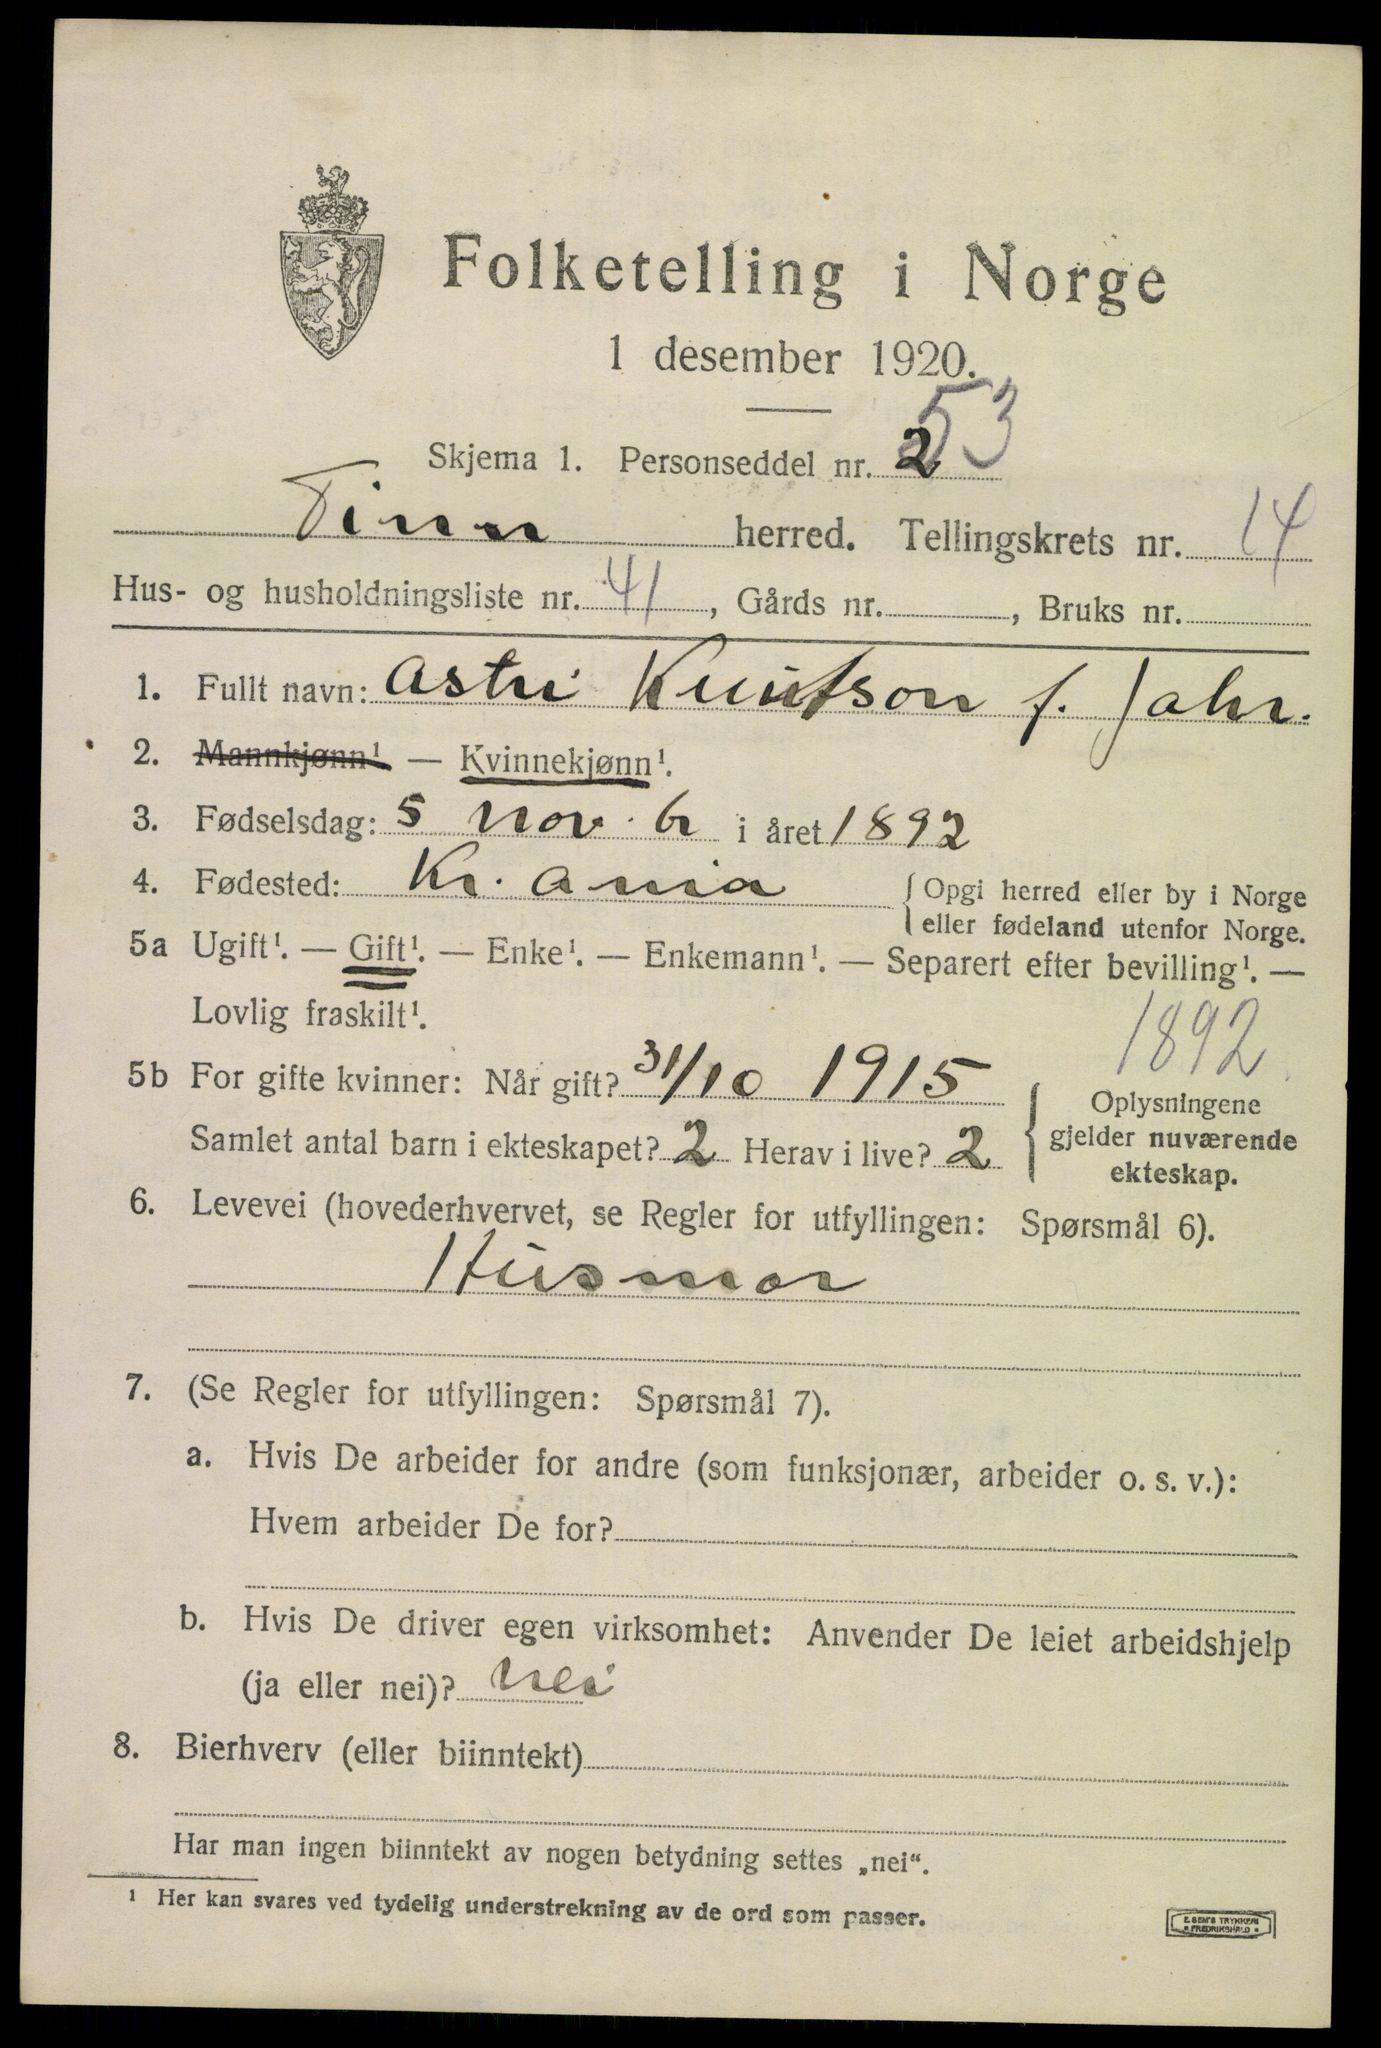 Folketelling i Norge
1 desember 1920.
53
Skjema 1. Personseddel nr. 2
Tinn herred. Tellingskrets nr. 14
Hus- og husholdningsliste nr. 41, Gårds nr. , Bruks nr.
1. Fullt navn: Astri Knutson f. Jahr.
2. Mannkjønn¹ — Kvinnekjønn¹.
3. Fødselsdag: 5 Nov. br i året 1892
4. Fødested: Kr.ania { Opgi herred eller by i Norge
eller fødeland utenfor Norge.
5a Ugift¹. — Gift¹. — Enke¹. — Enkemann¹. — Separert efter bevilling¹. —
Lovlig fraskilt¹.
1892
5b For gifte kvinner: Når gift? 31/10 1915
Samlet antal barn i ekteskapet? 2 Herav i live? 2
Oplysningene
gjelder nuværende
ekteskap.
6. Levevei (hovederhvervet, se Regler for utfyllingen: Spørsmål 6).
Husmor
7. (Se Regler for utfyllingen: Spørsmål 7).
a. Hvis De arbeider for andre (som funksjonær, arbeider o. s. v.):
Hvem arbeider De for?
b. Hvis De driver egen virksomhet: Anvender De leiet arbeidshjelp
(ja eller nei)? Nei
8. Bierhverv (eller biinntekt)
Har man ingen biinntekt av nogen betydning settes „nei“.
¹ Her kan svares ved tydelig understrekning av de ord som passer.
E. SEM'S TRYKKERI
• FREDRIKSHALD •